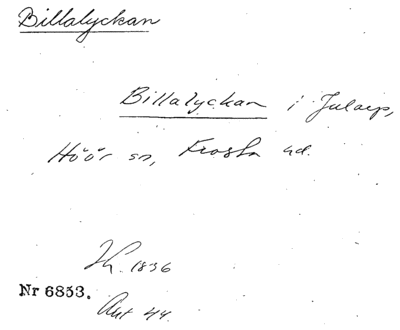 Billalyckan
Billalyckan i Jularp,
Höör sn, Frosta hd.
1836
Nr 6853.
Akt 44.